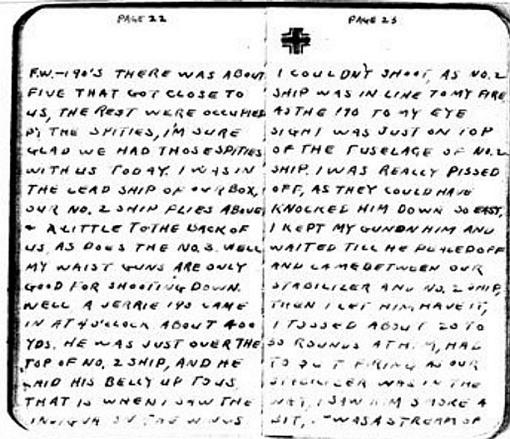 PAGE 22
F.W.-190'S THERE WAS ABOUT
FIVE THAT GOT CLOSE TO
US, THE REST WERE OCCUPIED
BY THE SPITIES, I'M SURE
GLAD WE HAD THOSE SPITIES
WITH US TODAY. I WAS IN
THE LEAD SHIP OF OUR BOX,
OUR NO. 2 SHIP FLIES ABOVE
& A LITTLE TO THE BACK OF
US, AS DOES THE NO. 3. WELL
MY WAIST GUNS ARE ONLY
GOOD FOR SHOOTING DOWN.
WELL A JERRIE 190 CAME
IN AT 4 O'CLOCK ABOUT 400
YDS. HE WAS JUST OVER THE
TOP OF NO. 2 SHIP, AND HE
LAID HIS BELLY UP TO US,
THAT IS WHEN I SAW THE
ON THE WINGS
PAGE 23
I COULDN'T SHOOT, AS NO. 2
SHIP WAS IN LINE TO MY FIRE
AS THE 190 TO MY EYE
SIGHT WAS JUST ON TOP
OF THE FUSELAGE OF NO. 2
SHIP. I WAS REALLY PISSED
OFF, AS THEY COULD HAVE
KNOCKED HIM DOWN SO EASY.
I KEPT MY GUN ON HIM AND
WAITED TILL HE PEALED OFF
AND CAME BETWEEN OUR
STABILIZER AND NO. 2 SHIP,
THEN I LET HIM HAVE IT,
I TOSSED ABOUT 20 TO
30 ROUNDS AT HIM, HAD
TO FIRING AS OUR
STABILIZER WAS IN THE
WAY, I SAW HIM SMOKE A
BIT, WAS A STREAM OF